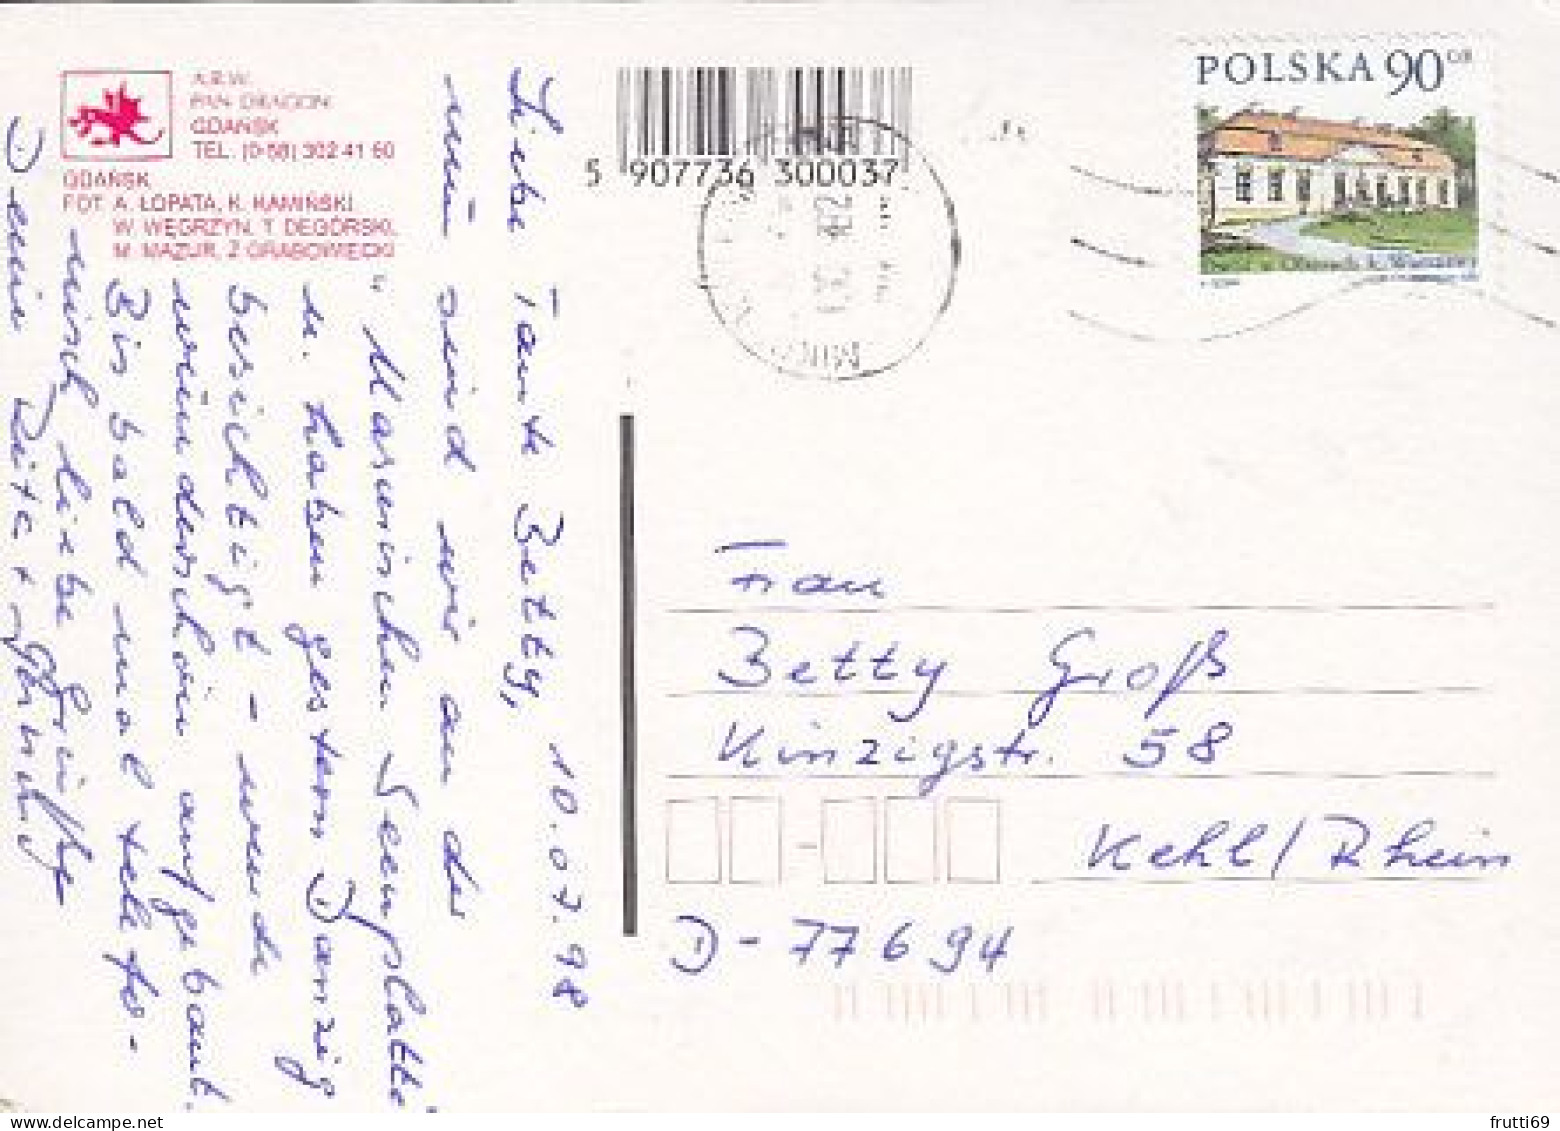 A.R.W.
PAN DRAGON
GDAŃSK
TEL. (0-58) 302 41 60
GDAŃSK
FOT. A. ŁOPATA, K. KAMIŃSKI,
W. WĘGRZYN, T. DEGÓRSKI,
M. MAZUR, Z. GRABOWIECKI
5 907736 300037
POLSKA 90 GR
10.07.98
Liebe Tante Betty,
nun sind wir an der
"Masurischen Seenplatte"
u. haben gestern Danzig
besichtigt - wurde
wunderschön aufgebaut.
Bis bald mal telefo-
nisch liebe Grüße
Deine Rita +
Frau
Betty Groß
Kinzigstr. 58
Kehl/Rhein
D-77694
frutti69